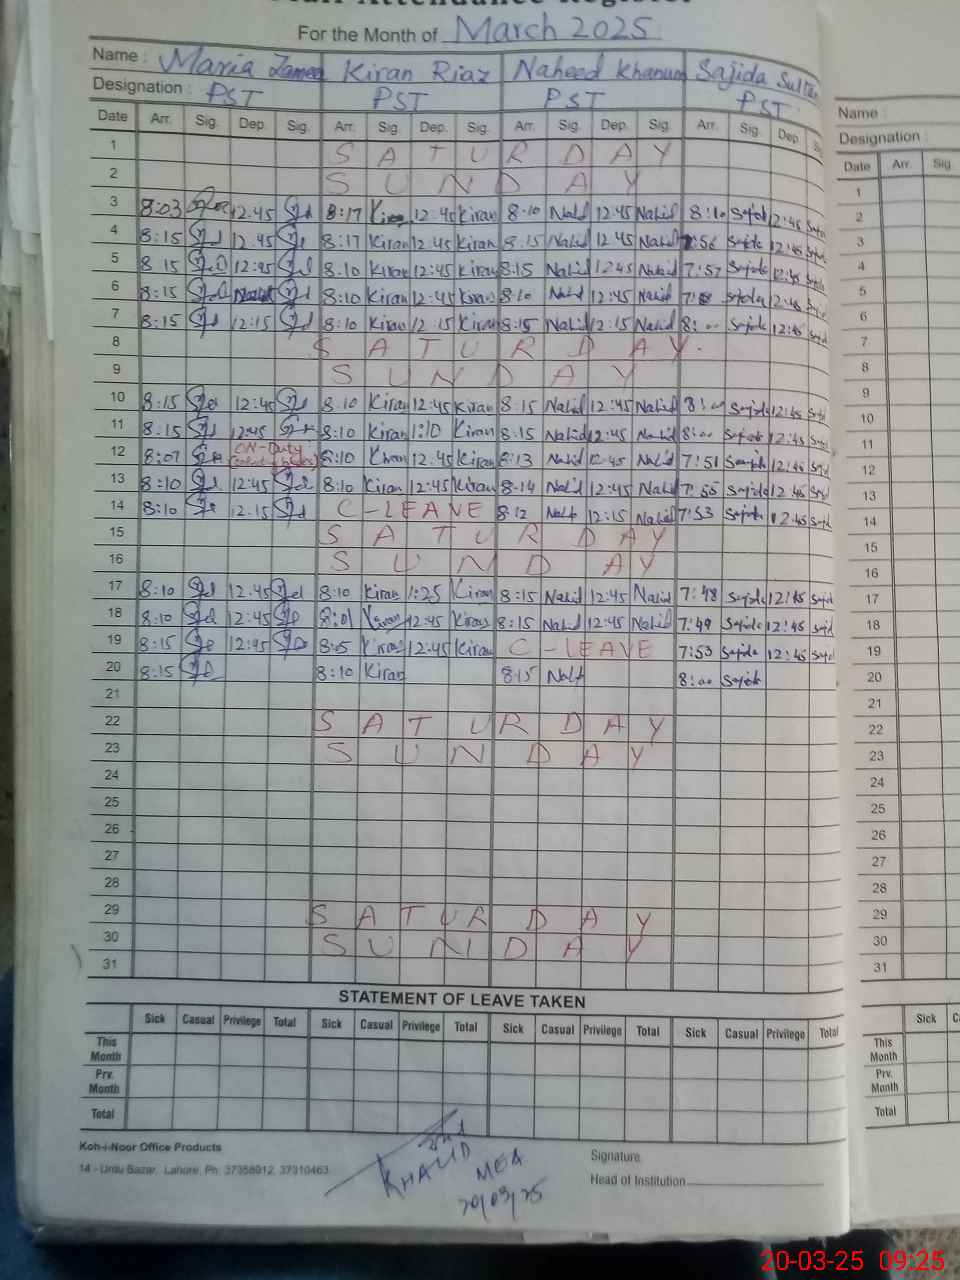 Staff Attendance Register
For the Month of March 2025
Name : Maria Kiran Riaz Naheed Khanum Sajida Sultan
Designation : PST PST PST PST
Date Arr. Sig. Dep. Sig. Arr. Sig. Dep. Sig. Arr. Sig. Dep. Sig. Arr. Sig. Dep
1 SATURDAY
2 SUNDAY
3 8:03 12:45 8:17 Kiran 12:45 Kiran 8:10 Nahid 12:45 Nahid 8:10 Sajida 12:45
4 8:15 12:45 8:17 Kiran 12:45 Kiran 8:15 Nahid 12 45 Nahid 7:56 Sajida 12:45
5 8 15 12:45 8:10 Kiran 12:45 Kiran 8:15 Nahid 1245 Nahid 7:57 Sajida 12:45
6 8:15 8:10 Kiran 12:45 Kiran 8:10 Nahid 12:45 Nahid Sajida 12:45
7 8:15 12:15 8:10 Kiran 12:15 Kiran 8:15 Nahid 12:15 Nahid 8:00 Sajida 12:45
8 SATURDAY.
9 SUNDAY
10 8:15 12:45 8:10 Kiran 12:45 Kiran 8:15 Nahid 12:45 Nahid 8:00 Sajida 12:45
11 8:15 12:45 8:10 Kiran 1:10 Kiran 8:15 Nahid 12:45 Nahid 8:00 Sajida 12:45
12 8:07 ON-Duty 8:10 Kiran 12:45 Kiran 8:13 Nahid 12:45 Nahid 7:51 Sajida 12:45
13 8:10 12:45 8:10 Kiran 12:45 Kiran 8:14 Nahid 12:45 Nahid 7:55 Sajida 12 45
14 8:10 12:15 C-LEAVE 8:12 Nahid 12:15 Nahid 7:53 Sajida 12:45
15 SATURDAY
16 SUNDAY
17 8:10 12:45 8:10 Kiran 1:25 Kiran 8:15 Nahid 12:45 Nahid 7:48 Sajida 12:45
18 8:10 12:45 8:01 Kiran 12:45 Kiran 8:15 Nahid 12:45 Nahid 7:49 Sajida 12:45
19 8:15 12:45 8:05 Kiran 12:45 Kiran C-LEAVE 7:53 Sajida 12:45
20 8:15 8:10 Kiran 8:15 Nahid 8:00 Sajida
21
22 SATURDAY
23 SUNDAY
24
25
26
27
28
29 SATURDAY
30 SUNDAY
31
STATEMENT OF LEAVE TAKEN
Sick Casual Privilege Total Sick Casual Privilege Total Sick Casual Privilege Total Sick Casual Privilege Total
This Month
Prv. Month
Total
Koh-i-Noor Office Products
14 - Urdu Bazar, Lahore. Ph: 37358912, 37310463
Signature
Head of Institution
KHALID
MEA
20/03/25
Name :
Designation :
Date Arr. Sig.
1
2
3
4
5
6
7
8
9
10
11
12
13
14
15
16
17
18
19
20
21
22
23
24
25
26
27
28
29
30
31
Sick
This Month
Prv. Month
Total
20-03-25 09:25